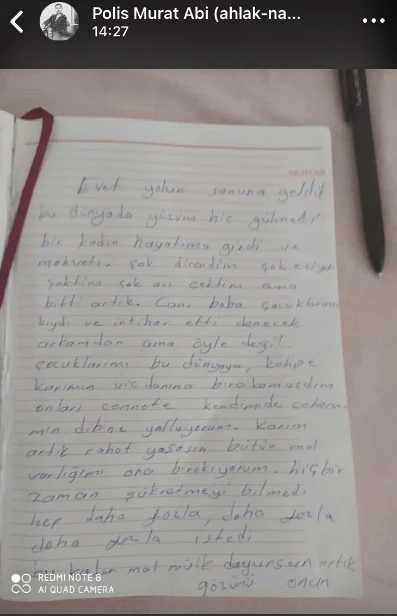 Polis Murat Abi (ahlak-na...
14:27
NOTLAR
Evet yolun sonuna geldik
bu dünyada yüzüm hiç gülmedi
bir kadın hayatıma girdi ve
mahvetti. çok direndim çok eziyet
çektim çok acı çektim ama
bitti artık. Cani baba çocuklarına
kıydı ve intihar etti denecek
arkamdan ama öyle değil
çocuklarımı bu dünyaya, kahpe
karımın vicdanına bırakamazdım
onları cennete kendimide cehenne-
min dibine yolluyorum. Karım
artık rahat yaşasın bütün mal
varlığımı ona bırakıyorum. hiçbir
zaman şükretmeyi bilmedi
hep daha fazla, daha fazla
daha fazla istedi
bu kadar mal mülk doyursun artık
gözünü onun
REDMI NOTE 8
AI QUAD CAMERA